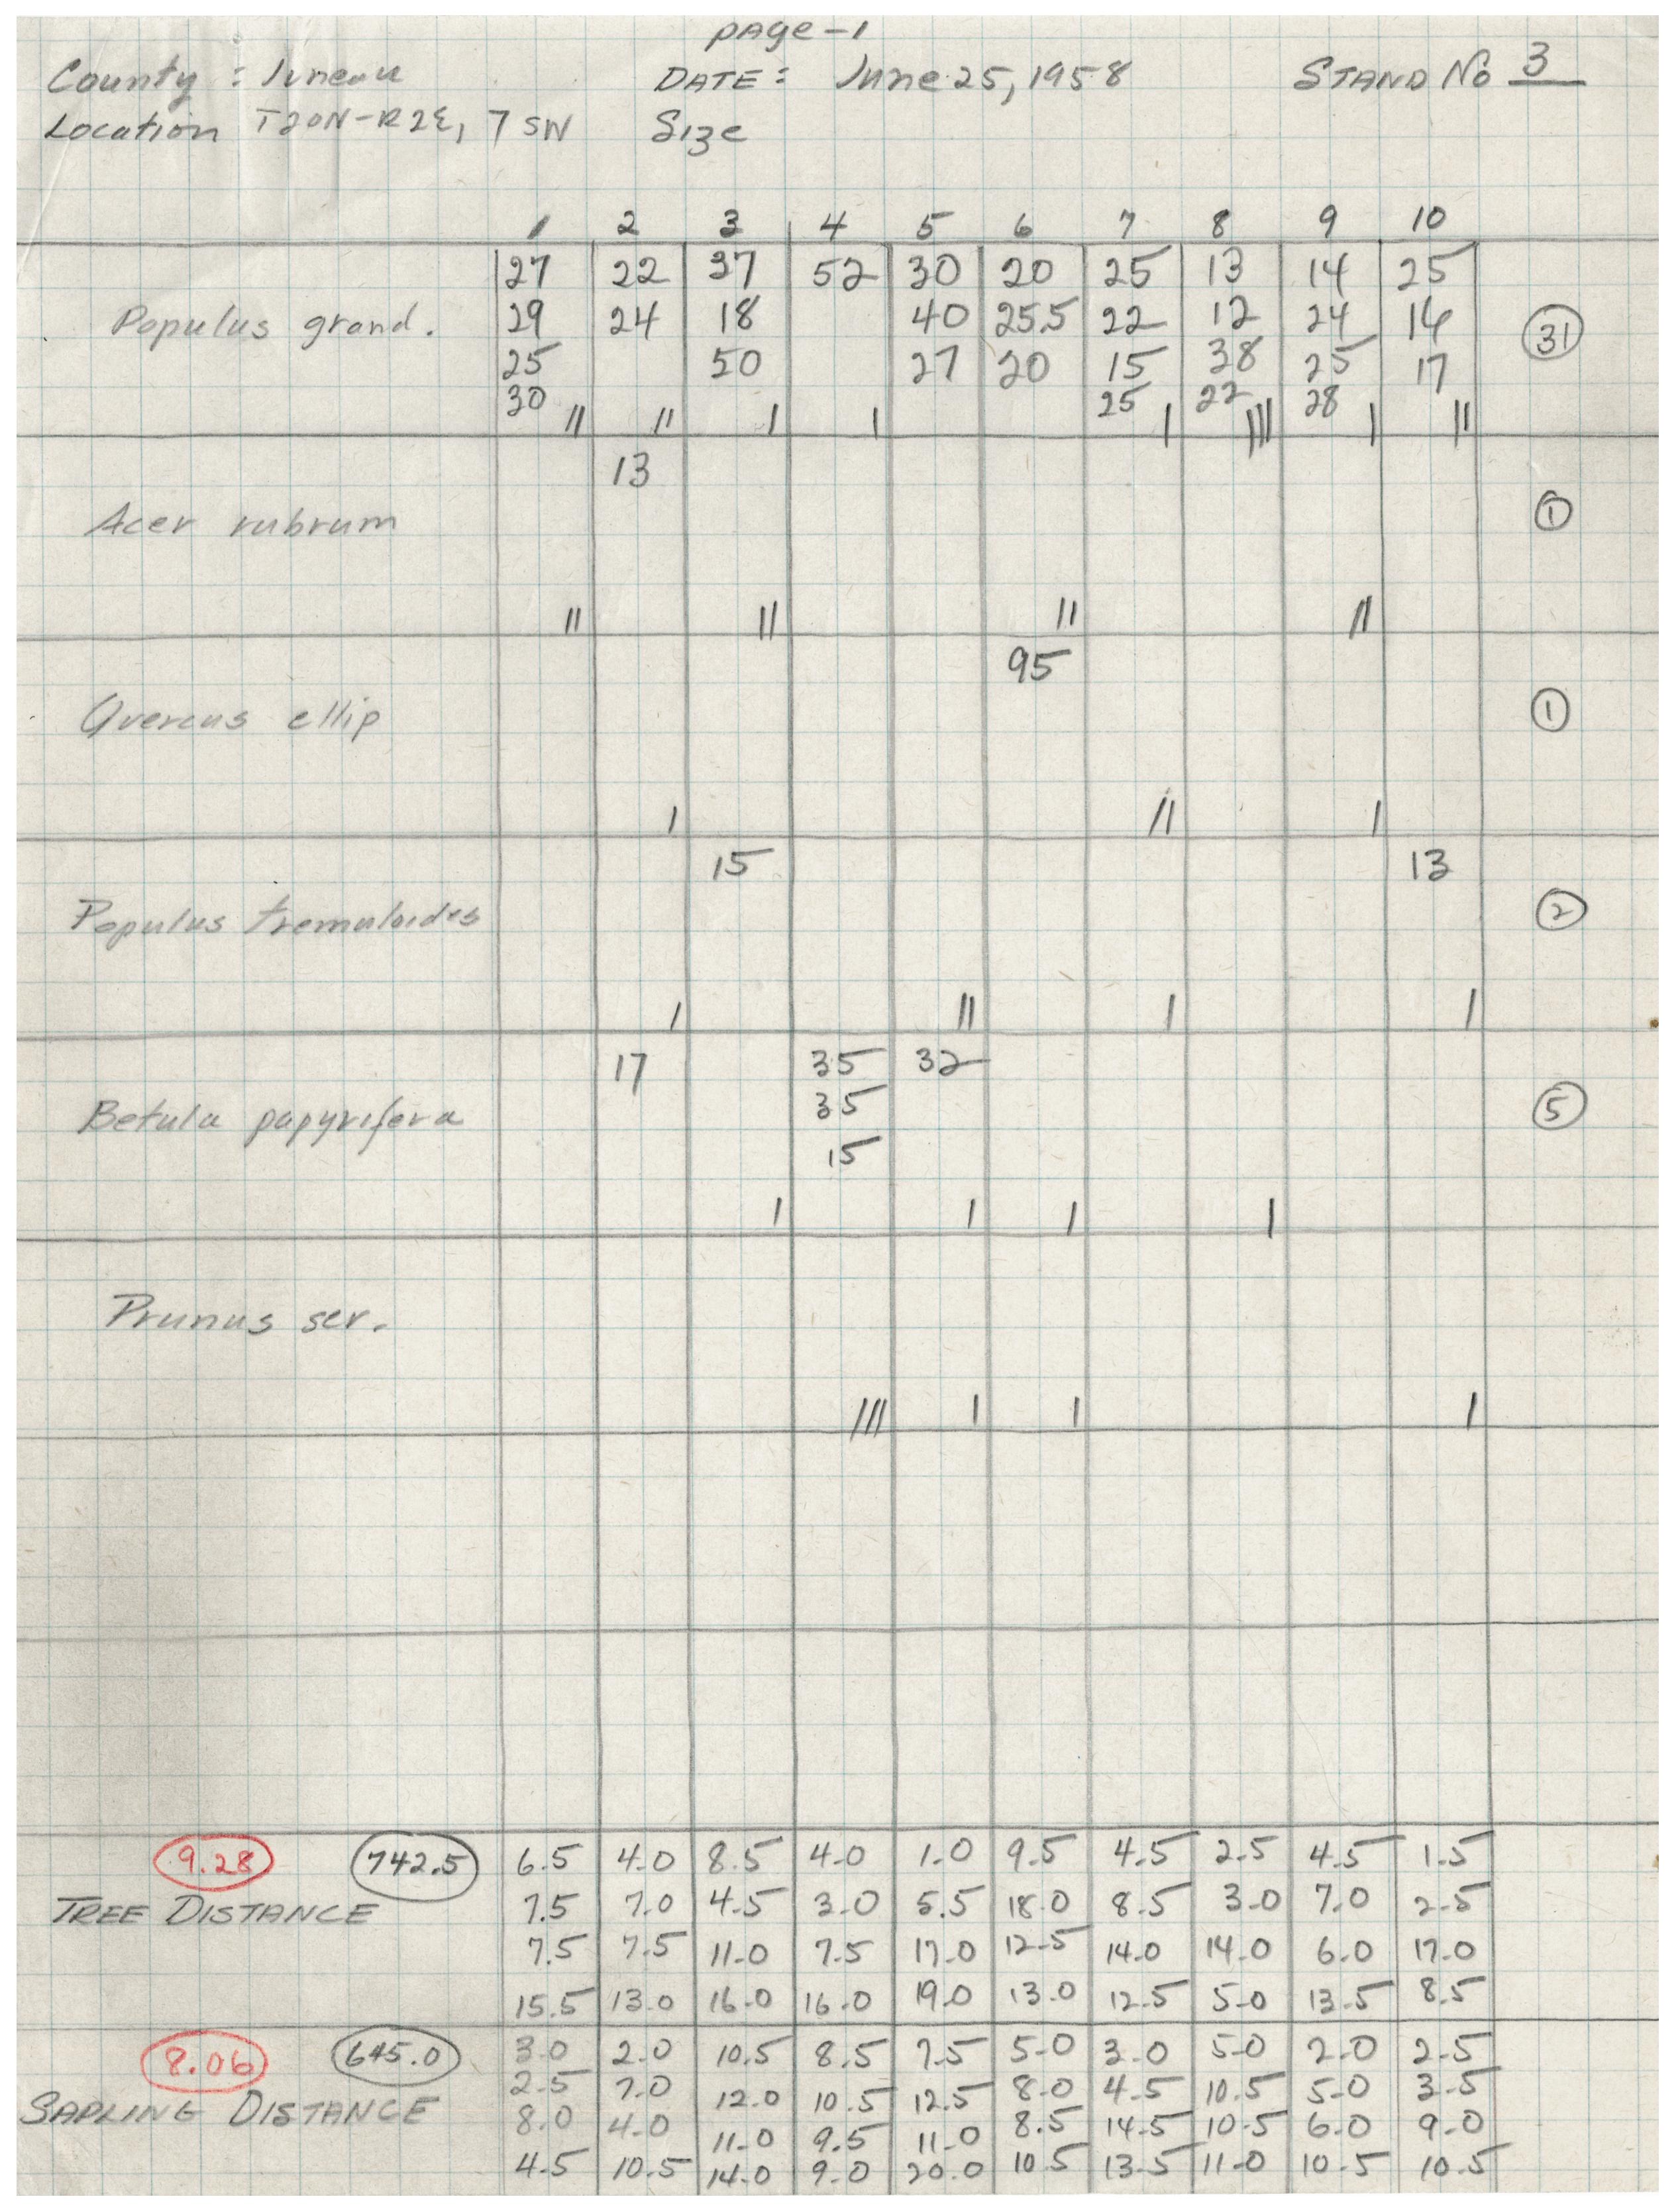 page-1
County: Juneau DATE: June 25, 1958 STAND No 3
Location T20N-R2E, 7 SW Size
1 2 3 4 5 6 7 8 9 10
27 22 37 52 30 20 25 13 14 25
Populus grand. 29 24 18 40 25.5 22 12 24 14 31
25 50 27 20 15 38 25 17
30 || || | | 25 | 22 |||| 28 | ||
13
Acer rubrum 1
|| || || ||
95
Quercus ellip 1
| || |
15 13
Populus tremuloides 2
| || | |
17 35 32
Betula papyrifera 35 5
15
| | | |
Prunus ser.
||| | | |
9.28 742.5 6.5 4.0 8.5 4.0 1.0 9.5 4.5 2.5 4.5 1.5
TREE DISTANCE 7.5 7.0 4.5 3.0 5.5 18.0 8.5 3.0 7.0 2.5
7.5 7.5 11.0 7.5 17.0 12.5 14.0 14.0 6.0 17.0
15.5 13.0 16.0 16.0 19.0 13.0 12.5 5.0 13.5 8.5
8.06 645.0 3.0 2.0 10.5 8.5 7.5 5.0 3.0 5.0 2.0 2.5
2.5 7.0 12.0 10.5 12.5 8.0 4.5 10.5 5.0 3.5
SAPLING DISTANCE 8.0 4.0 11.0 9.5 11.0 8.5 14.5 10.5 6.0 9.0
4.5 10.5 14.0 9.0 20.0 10.5 13.5 11.0 10.5 10.5